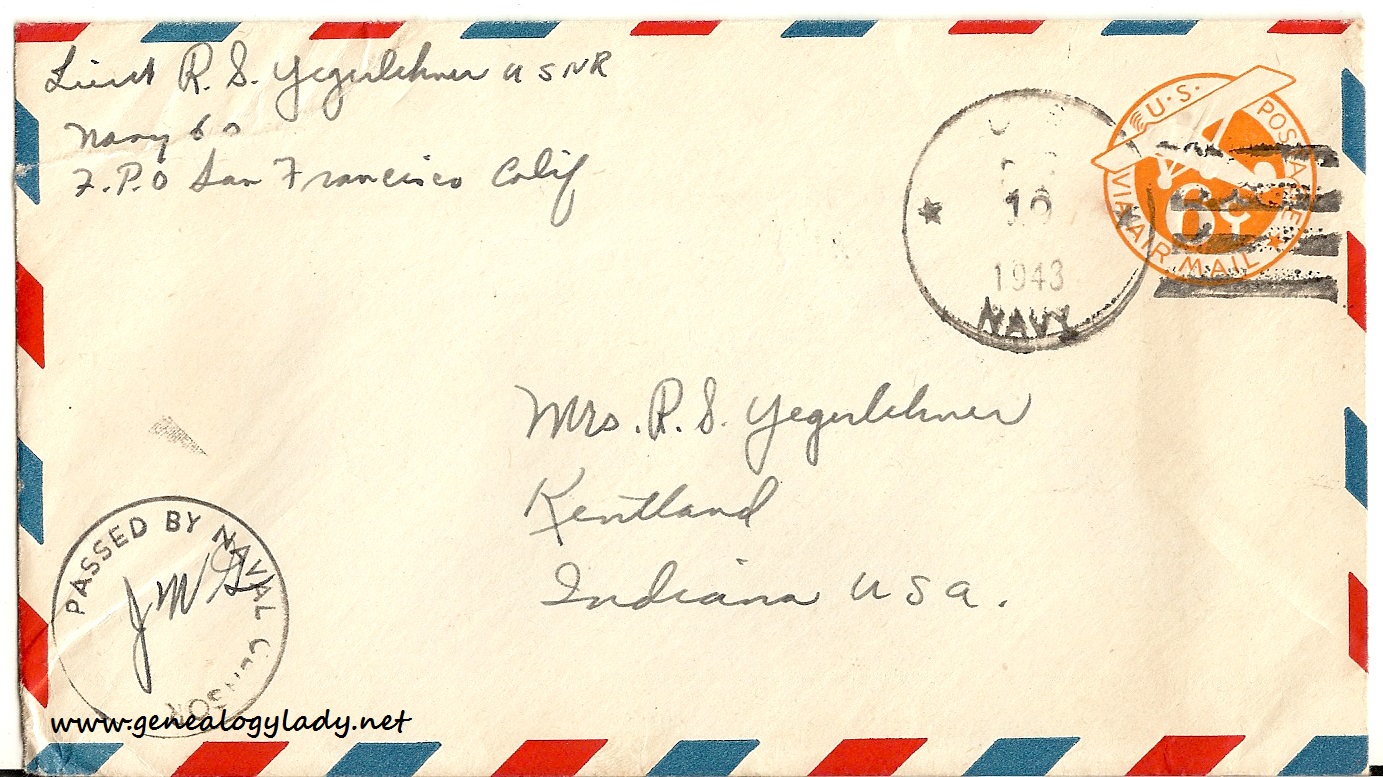 Lieut R. S. Yegerlehner USNR
Navy 60
F.P.O San Francisco Calif
U.S. POSTAGE
VIA AIR MAIL
6¢
10
1943
NAVY
Mrs. R. S. Yegerlehner
Kentland
Indiana USA.
PASSED BY NAVAL CENSOR
www.genealogylady.net